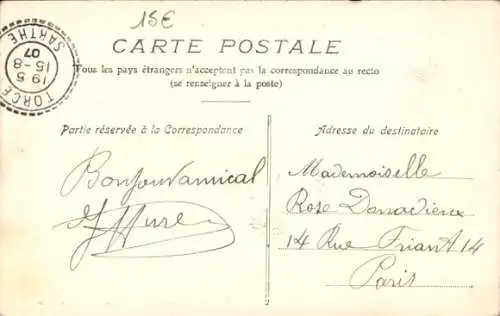 15€
CARTE POSTALE
Tous les pays étrangers n'acceptent pas la correspondance au recto
(se renseigner à la poste)
TORCÉ
19 5
15-8
07
SARTHE
Partie réservée à la Correspondance
Bonjour amical
Adresse du destinataire
Mademoiselle
Rose Donadieux
14 Rue Friant 14
Paris
2